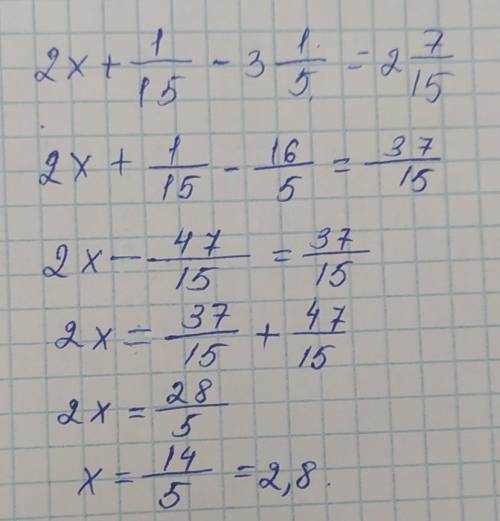 2x + 1/15 - 3 1/5 = 2 7/15
2x + 1/15 - 16/5 = 37/15
2x - 47/15 = 37/15
2x = 37/15 + 47/15
2x = 28/5
x = 14/5 = 2,8.